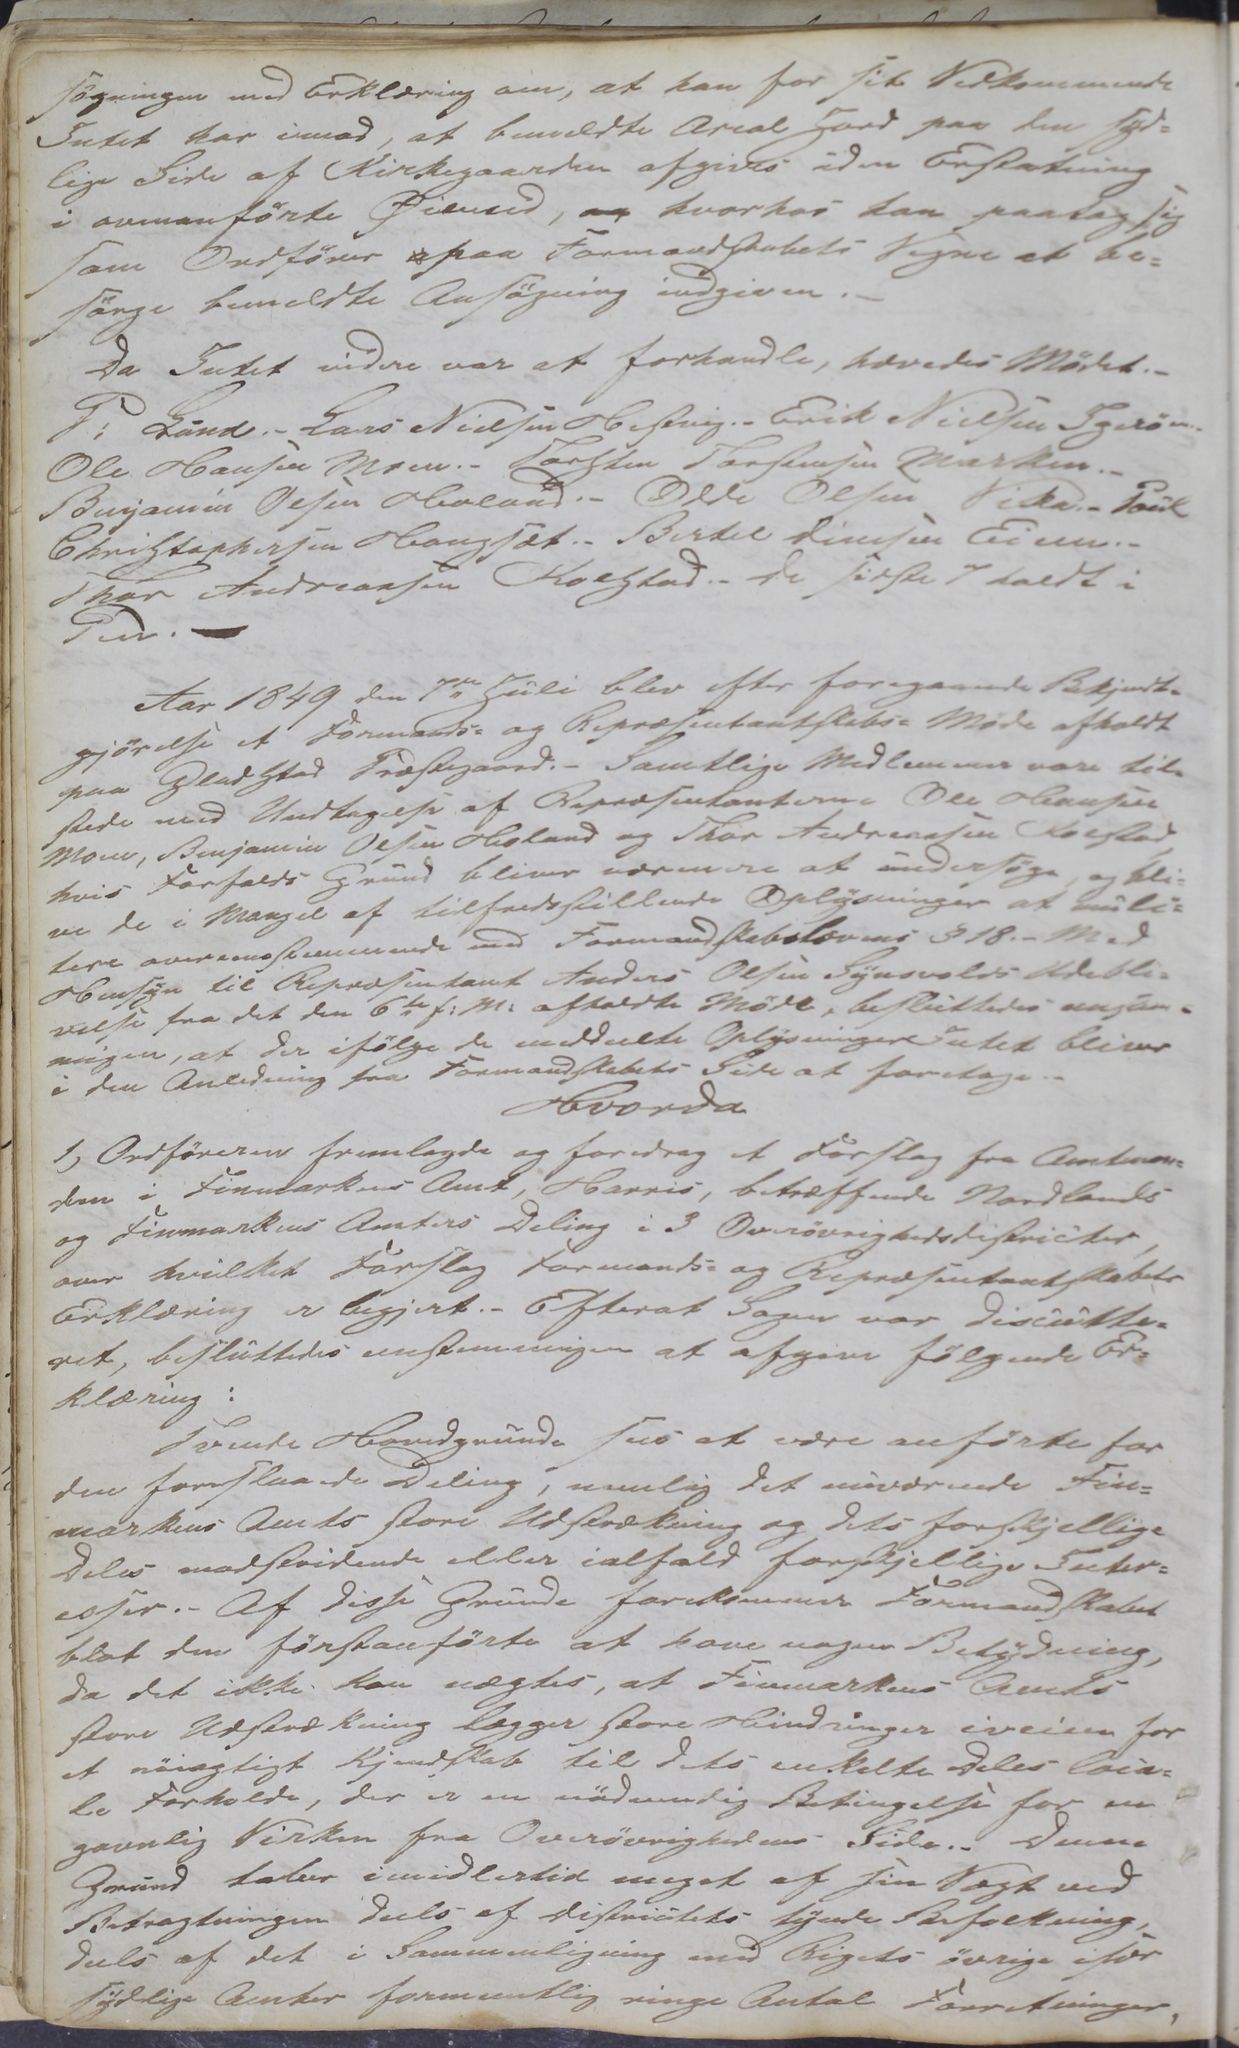 søgningen med Erklæring om, at han for sit Vedkommende
Intet har imod, at bemeldte Areal Jord paa den syd-
lige Side af Kirkegaarden afgives uden Erstatning
i ovenanførte Øiemed, hvorhos han paatog sig
som Ordfører paa Formandskabets Vegne at be-
sørge bemeldte Ansøgning indgiven.-
Da Intet videre var at forhandle, hævedes Mødet.-
P: Lund.- Lars Nielsen Hestvig.- Erik Nielsen
Ole Hansen Moen.- Torsten Torstensen Marken.-
Benjamin Olsen Holand.- Olle Olsen Vika.- Poul
Christophersen Haugsæt.- Bertel Eimsen Eiem.-
Thor Andreassen Kolstad.- De sidste 7 holdt i
Pen.-
Aar 1849 den 7de Juli blev efter foregaaende Bekjendt-
gjørelse et Formands- og Repræsentantskabs-Møde afholdt
paa Gladstad Præstegaard.- Samtlige Medlemmer vare til-
stede med Undtagelse af Repræsentanterne Ole Hansen
Moen, Benjamin Olsen Holand og Thor Andreassen Kolstad,
hvis Forfalds Grund bliver nærmere at undersøge, og bli-
ve de i Mangel af tilfredsstillende Oplysninger at mulc-
tere overensstemmende med Formandskabslovens § 18.- Med
Hensyn til Repræsentant Anders Olsen Synsvolds Udebli-
velse fra det den 6te f: M: afholdte Møde, besluttedes eenstem-
migen, at der ifølge de meddeelte Oplysninger Intet bliver
i den Anledning fra Formandskabets Side at foretage.-
Hvorda
1, Ordføreren fremlagde og foredrog et Forslag fra Amtman-
den i Finmarkens Amt, Harris, betræffende Nordlands
og Finmarkens Amters Deling i 3 Overøvrighedsdistricter,
over hvilket Forslag Formands- og Repræsentantskabets
Erklæring er begjert.- Efterat Sagen var discutte-
ret, besluttedes eenstemmigen at afgive følgende Er-
klæring:
Tvende Hovedgrunde sees at være anførte for
den foreslaaede Deling, nemlig det nuværende Fin-
markens Amts store Udstrækning og dets forskjellige
Deles modstridende eller ialfald forskjellige Inter-
esser.- Af disse Grunde forekommer Formandskabet
blot den førstanførte at have nogen Betydning,
da det ikke kan nægtes, at Finmarkens Amts
store Udstrækning lægger store Hindringer iveien for
et nøiagtigt Kjendskab til dets enkelte Deles loca-
le Forholde, der er en nødvendig Betingelse for en
gavnlig Virken fra Overøvrighedens Side.- Denne
Grund taber imidlertid meget af sin Vægt ved
Betragtningen deels af Districtets tynde Befolkning,
deels af det i Sammenligning med Rigets øvrige især
sydlige Amter formeentlig ringe Antal Forretninger,